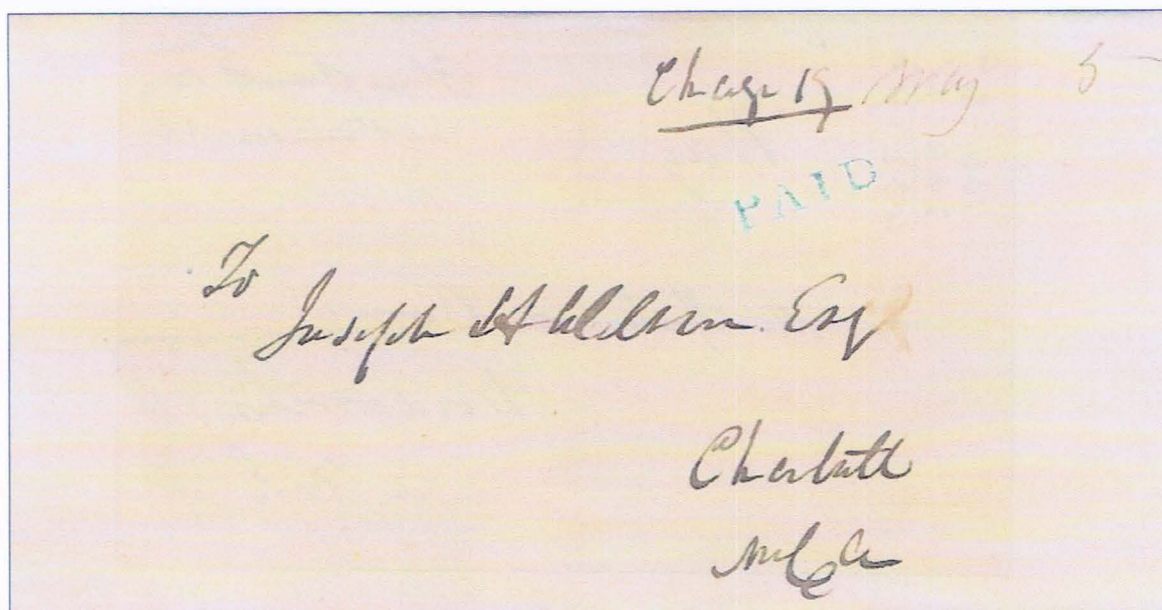 Charge 19 May 5
PAID
To
Joseph H Wilson Esq
Charlotte